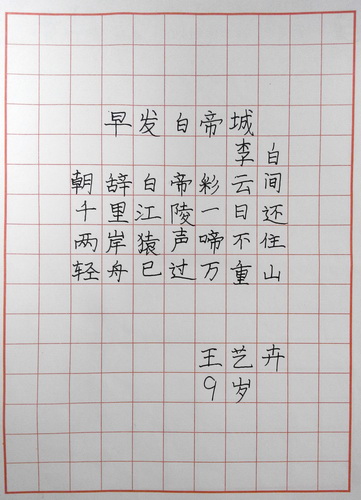 早发白帝城
李白
朝辞白帝彩云间
千里江陵一日还
两岸猿声啼不住
轻舟已过万重山
王艺卉
9岁